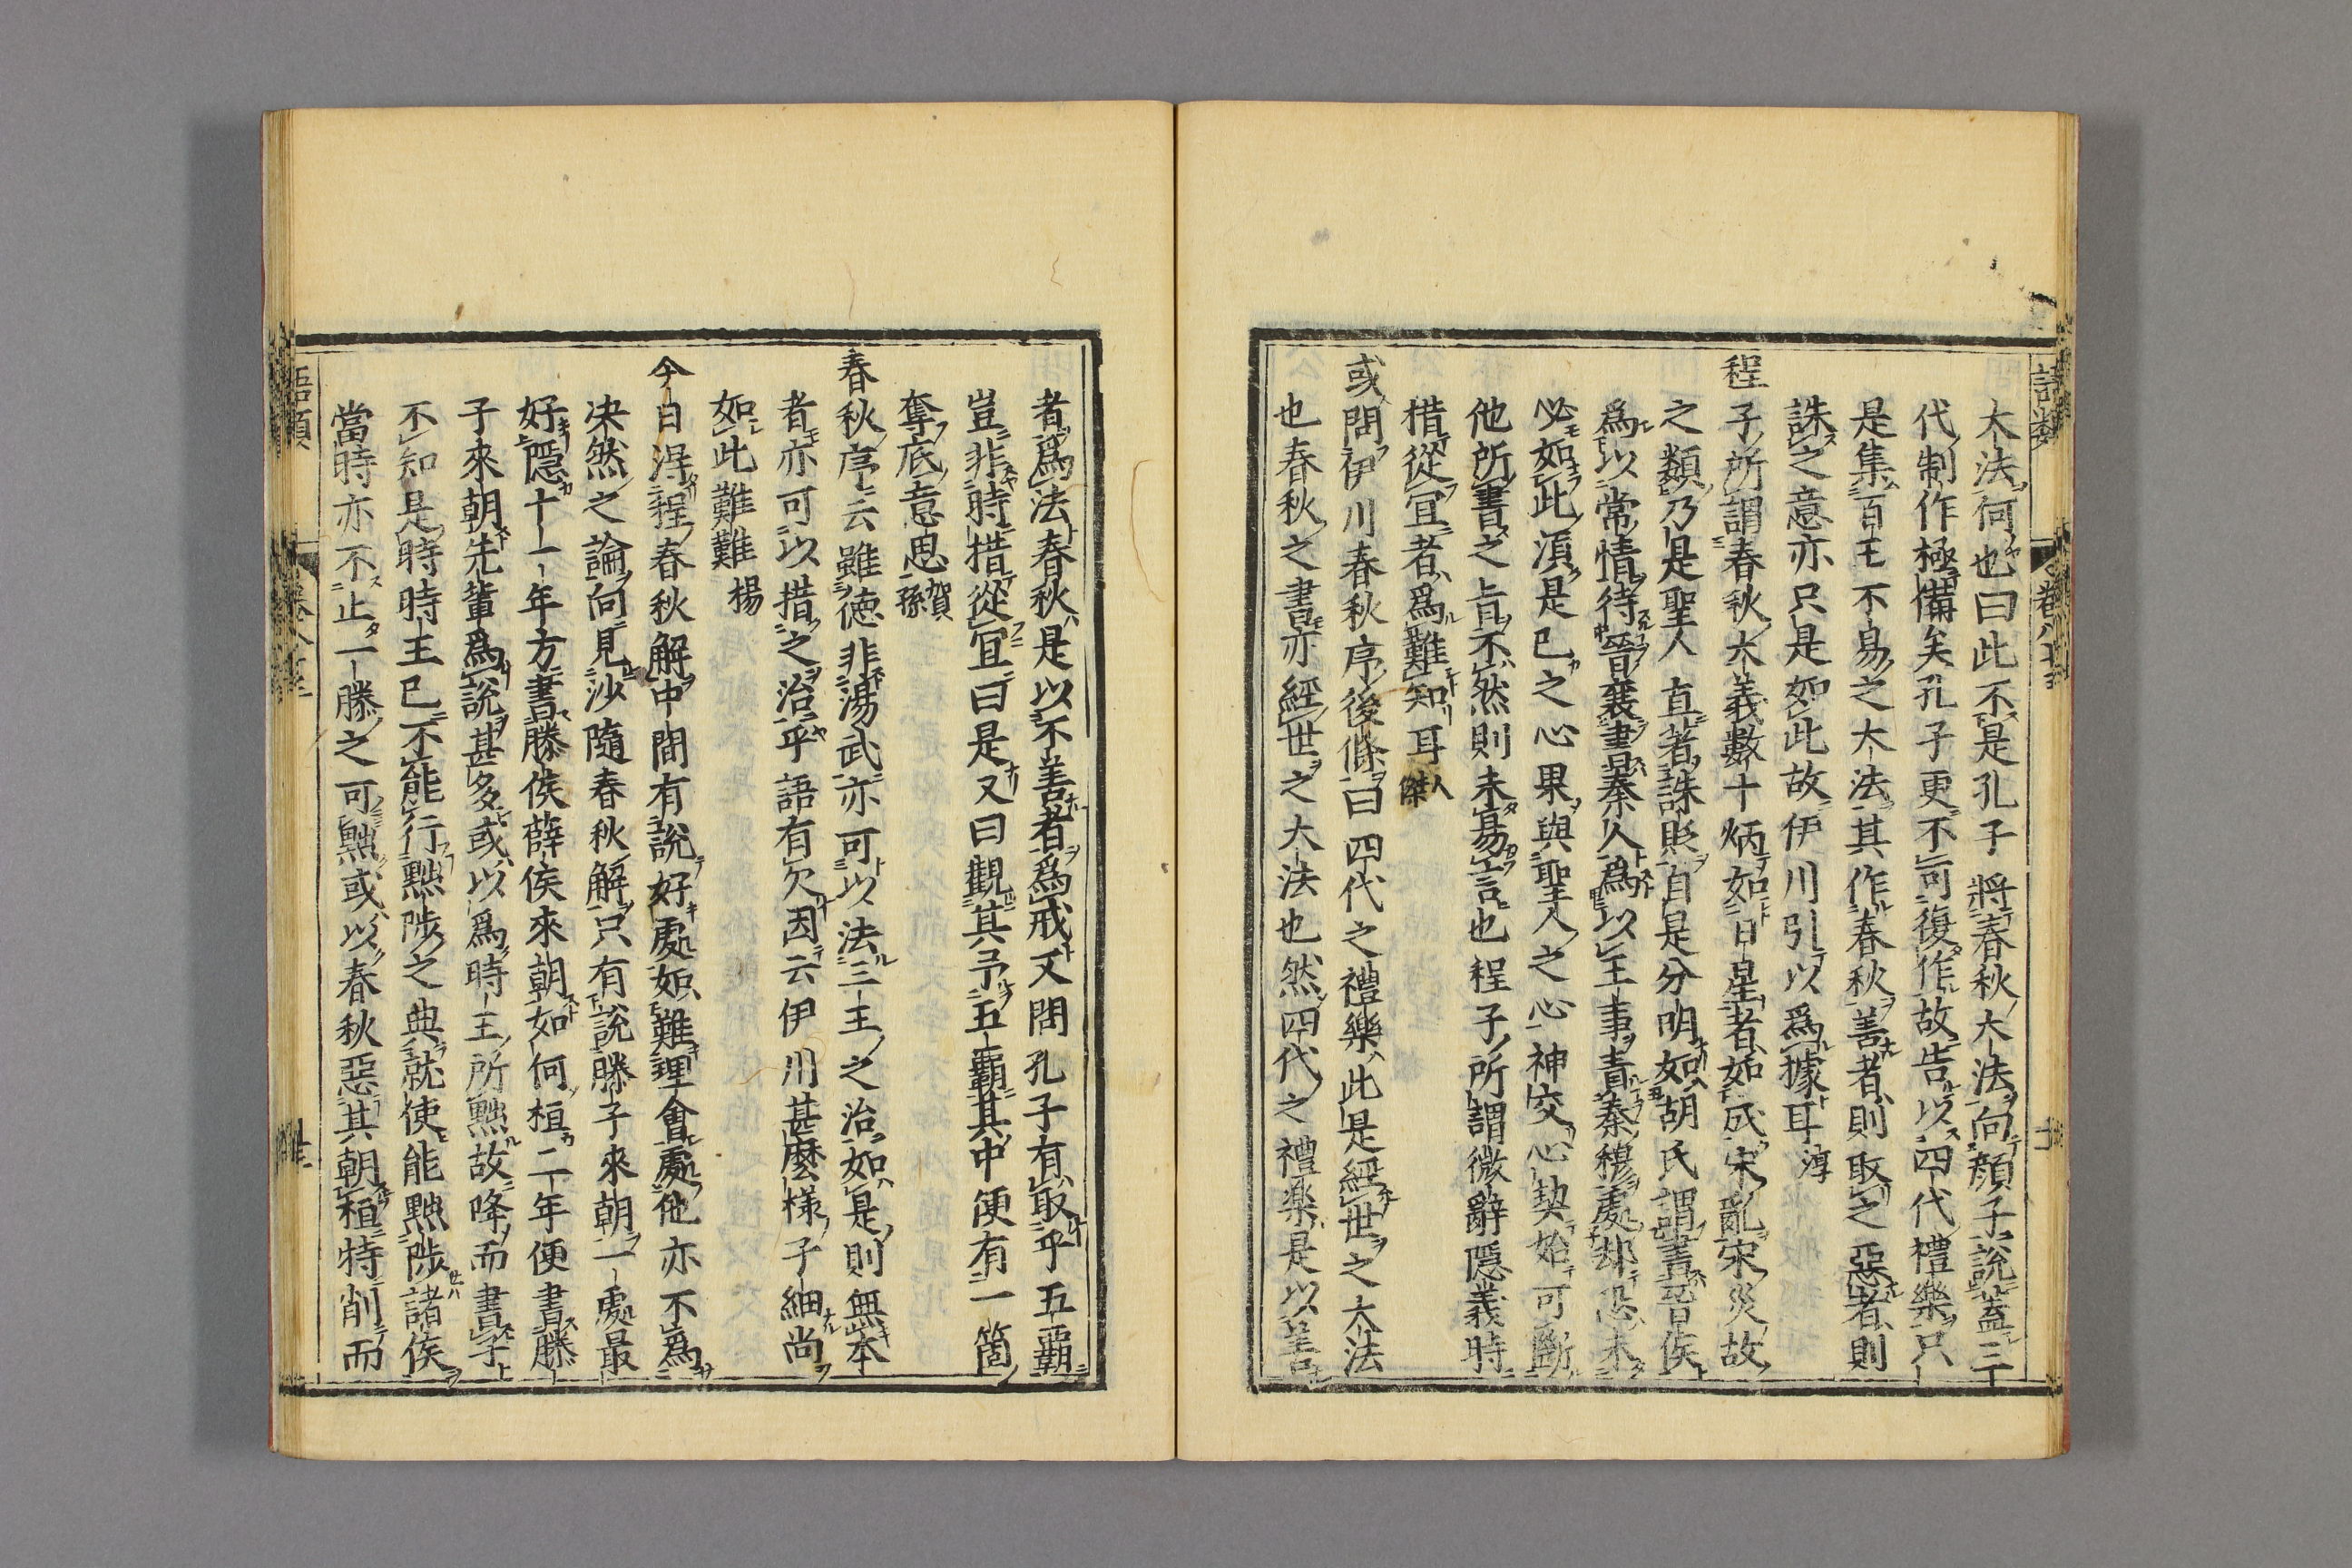 大法何也曰此不是孔子將春秋大法向顔子說蓋三
代制作極備矣孔子更不可復作故告以四代禮樂只
是集百王不易之大法其作春秋善者則取之惡者則
誅之意亦只是如此故伊川引以爲據耳 淳
程子所謂春秋大義數十炳如日星者如成宋亂宋災故
之類乃是聖人直著誅貶自是分明如胡氏謂書晉侯
爲以常情待晉襄書秦人爲以王事責秦穆處却恐未
必如此湏是已之心果與聖人之心神交心契始可斷
他所書之旨不然則未易言也程子所謂微辭隱義時
措從宜者爲難知耳 人傑
或問伊川春秋序後條曰四代之禮樂此是經世之大法
也春秋之書亦經世之大法也然四代之禮樂是以善
者爲法春秋是以不善者爲戒又問孔子有取乎五霸
豈非時措從宜曰是又曰觀其予五霸其中便有一箇
奪底意思 賀孫
春秋序云雖德非湯武亦可以法三王之治如是則無本
者亦可以措之治乎語有欠因云伊川甚麽樣子細尚
如此難難 楊
今日得程春秋解中間有說好處如難理會處他亦不爲
决然之論向見沙隨春秋解只有說滕子來朝一處最
好隱十一年方書滕侯薛侯來朝如何桓二年便書滕
子來朝先輩爲說甚多或以爲時王所黜故降而書子
不知是時時王已不能行黜陟之典就使能黜陟諸侯
當時亦不止一滕之可黜或以春秋惡其朝桓特削而
語類